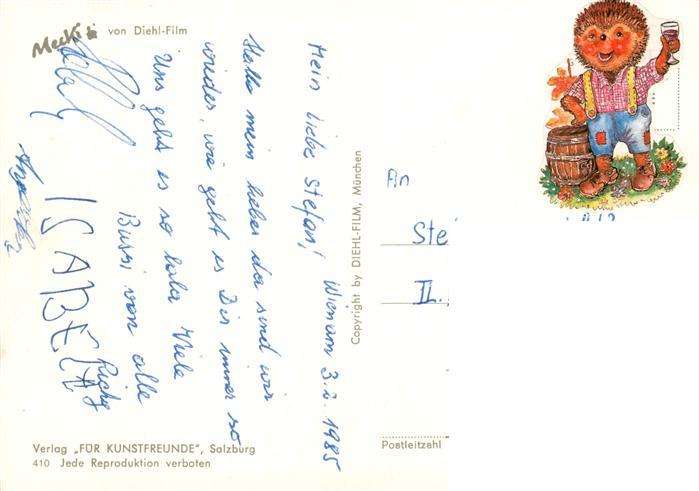 Mecki
von Diehl-Film
Mein liebe Stefan! Wien am 3.2.1985
Hallo mein lieber da sind wir
wieder, wie geht es Dir immer so
Uns geht es so lala Viele
Bussi von alle
ISABELA
Richy
Copyright by DIEHL-FILM, München
An
Ste
II.
Postleitzahl
Verlag „FÜR KUNSTFREUNDE", Salzburg
410 Jede Reproduktion verboten